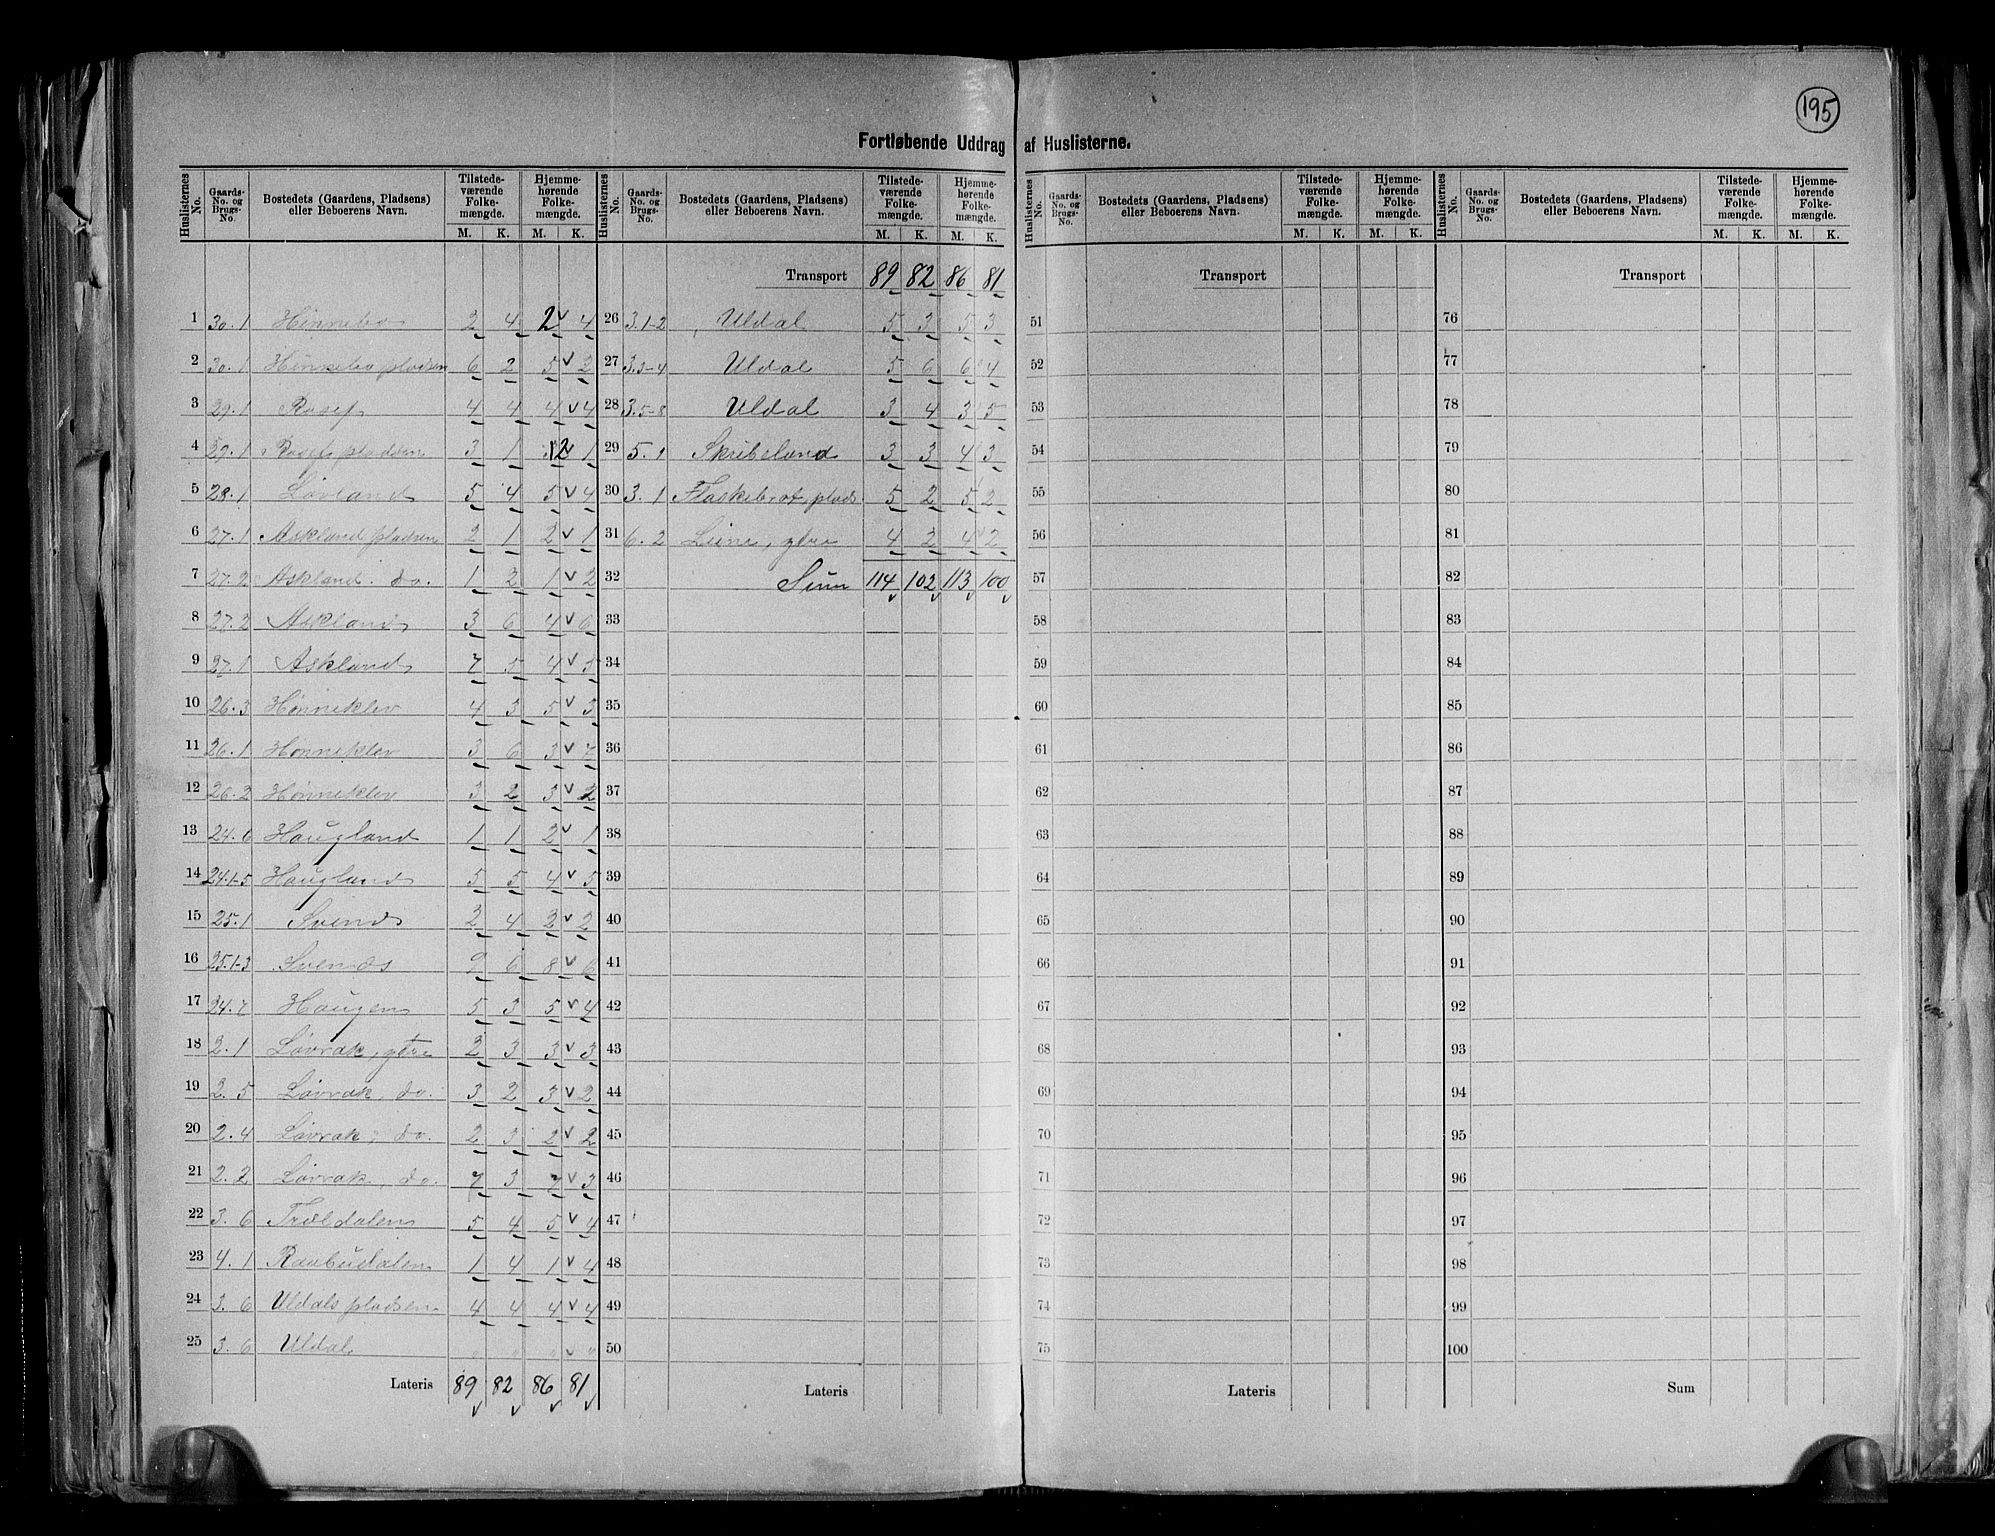 195
Fortløbende Uddrag af Huslisterne.
Huslisternes No. | Gaards-No. og Brugs-No. | Bostedets (Gaardens, Pladsens) eller Beboerens Navn. | Tilstedeværende Folkemængde. M. K. | Hjemmehørende Folkemængde. M. K.
1 30.1 Hinnebo 2 4 2 4
2 30.1 Hinnebo pladsen 6 2 5 2
3 29.1 Røsef 4 4 4 4
4 29.1 Røsef pladsen 3 1 2 1
5 28.1 Løvland 5 4 5 4
6 27.1 Askland pladsen 2 1 2 1
7 27.2 Askland do. 1 2 1 2
8 27.2 Askland 3 6 4 6
9 27.1 Askland 7 5 4 5
10 26.3 Hønneklev 4 3 5 3
11 26.1 Hønneklev 3 6 3 7
12 26.2 Hønneklev 3 2 3 2
13 24.6 Haugland 1 1 2 1
14 24.1-5 Haugland 5 5 4 5
15 25.1 Svenæs 2 4 2 2
16 25.1-3 Svenæs 9 6 8 6
17 24.7 Haugen 5 3 5 4
18 2.1 Løvrak, ytre 2 3 3 3
19 2.5 Løvrak, do. 3 2 3 2
20 2.4 Løvrak, do. 2 3 2 2
21 2.2 Løvrak, do. 7 3 7 3
22 3.6 Troldalen 5 4 5 4
23 4.1 Raubudalen 1 4 1 4
24 3.6 Uldals pladsen 4 4 4 4
25 3.6 Uldal " " " "
Lateris 89 82 86 81
Huslisternes No. | Gaards-No. og Brugs-No. | Bostedets (Gaardens, Pladsens) eller Beboerens Navn. | Tilstedeværende Folkemængde. M. K. | Hjemmehørende Folkemængde. M. K.
Transport 89 82 86 81
26 3.1-2 Uldal 5 3 5 3
27 3.3-4 Uldal 5 6 6 4
28 3.5-8 Uldal 3 4 3 5
29 5.1 Skribeland 3 3 4 3
30 3.1 Flaskebrot, plads 5 2 5 2
31 6.2 Leine, ytre 4 2 4 2
32 Sum 114 102 113 100
33
34
35
36
37
38
39
40
41
42
43
44
45
46
47
48
49
50
Lateris
Huslisternes No. | Gaards-No. og Brugs-No. | Bostedets (Gaardens, Pladsens) eller Beboerens Navn. | Tilstedeværende Folkemængde. M. K. | Hjemmehørende Folkemængde. M. K.
Transport
51
52
53
54
55
56
57
58
59
60
61
62
63
64
65
66
67
68
69
70
71
72
73
74
75
Lateris
Huslisternes No. | Gaards-No. og Brugs-No. | Bostedets (Gaardens, Pladsens) eller Beboerens Navn. | Tilstedeværende Folkemængde. M. K. | Hjemmehørende Folkemængde. M. K.
Transport
76
77
78
79
80
81
82
83
84
85
86
87
88
89
90
91
92
93
94
95
96
97
98
99
100
Sum